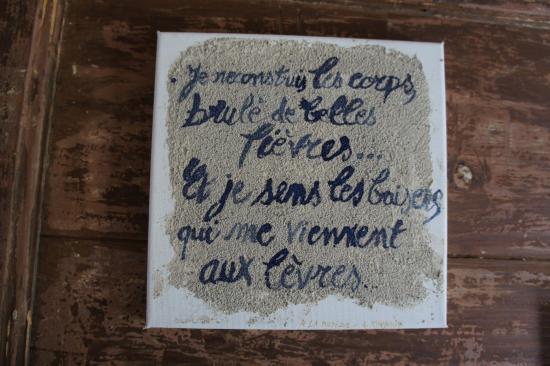 Je reconstruis les corps,
brulé de belles
fièvres...
Et je sens les baisers,
qui me viennent
aux lèvres...